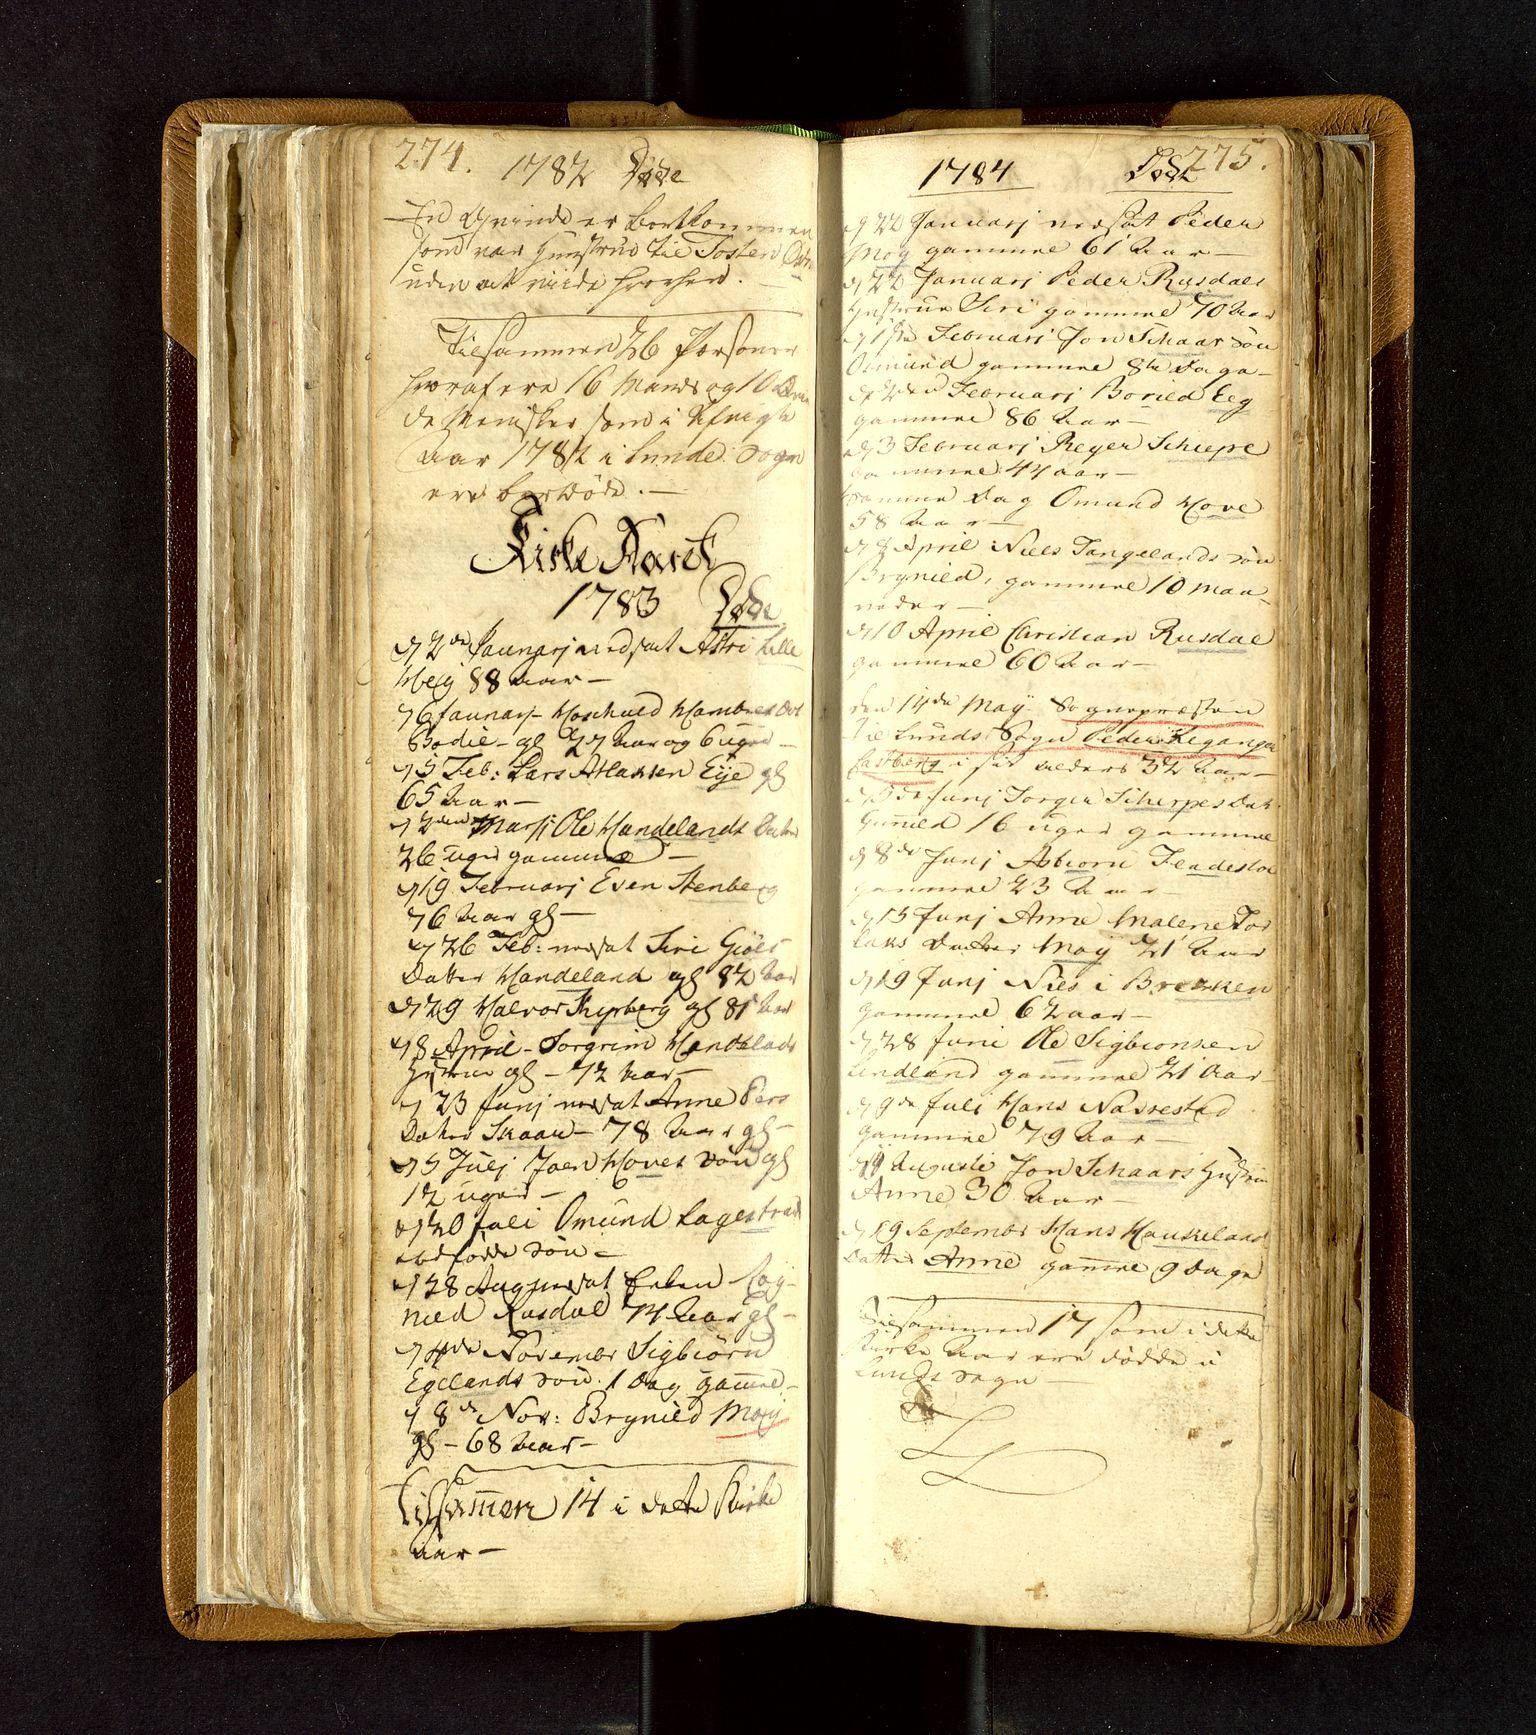 274.
1782 Døde
En Qvinde er bortkommen
som var Hustrue til Tosten
uden at viide hvorhen.
Tilsammen 26 Personer
hvoraf ere 16 Mands og 10 Qvin
de Menisker som i
Aar 1782 i Lunde Sogn
ere bortdøde.
Kirke Aaret
1783 Døde
d 2de Januarj nedsat Astri Lille
Hbeig 88 aar
d 6 Januarj
Bodil gl 27 Aar og 6 uger
d 5 Feb: Lars Atlaksen Eije gl
65 Aar
d 2den Marsj Ole Handelands Datter
26 uger gammel
d 19 Februarj Even Stenberg
76 Aar gl
d 26 Feb: nedsat Siri Giöls
Datter Handeland gl 82 Aar
d 29 Halvor gl 81 Aar
d 8 April Torgrim Handelands
Hustrue gl 72 Aar
d 23 Junj nedsat Anne Pers
Datter Skaar 78 Aar gl
d 5 Julj Joen Hoves Søn gl
12 uger
d 20 Juli Omund Lagestrad
dødfødde søn
d 28 Aug nedsat Enken Rag
nild Rusdal 74 Aar gl
d 4de November Sigbiörn
Egelands søn 1 Dag gammel
d 8de Nov: Brynild Moij
gl 68 Aar
Tilsammen 14 i dette Kirke
aar
275.
1784 Døde
d 22 Januarj nedsat Peder
Moy gammel 61 Aar
d 22 Januarj Peder Rusdals
Hustrue Siri gammel 70 Aar
d 1ste Februarj Jon Schaar søn
Osmund gammel 8te Daga
d 2den Februarj Borild Eeg
gammel 86 Aar
d 3 Februarj Reyer Schiepe
gammel 44 aar
samme Dag Omund Hove
58 Aar
d 8 April Niels Tangelands søn
Brynild, gammel 10 Maa
neder
d 10 April Christian Rusdal
gammel 60 Aar
den 14de Maij Sognepræsten
til Lunds Sogn Peder Leganger
Castberg i sit alders 32 Aar
d 5te Junj Torger Scherpes Dat
Gunild 16 uger gammel
d 8de Junj Asbiorn Fladestoe
gammel 23 Aar
d 15 Junj Anne Malene Tor
laks Datter Moij 21 Aar
d 19 Junj Niels i Brekken
gammel 62 aar
d 28 Juni Ole Sigbionsen
Lindland gammel 21 Aar
d 9de Juli Hans Nasrestad
gammel 79 Aar
d 11 Augusti Jon Schaars Hustrue
Anne 30 Aar
d 19 September Hans Haukeland
Datter Anne gammel 9 Dage
Tilsammen 17 som i dette
Kirke Aar ere dødde i
Lunds Sogn